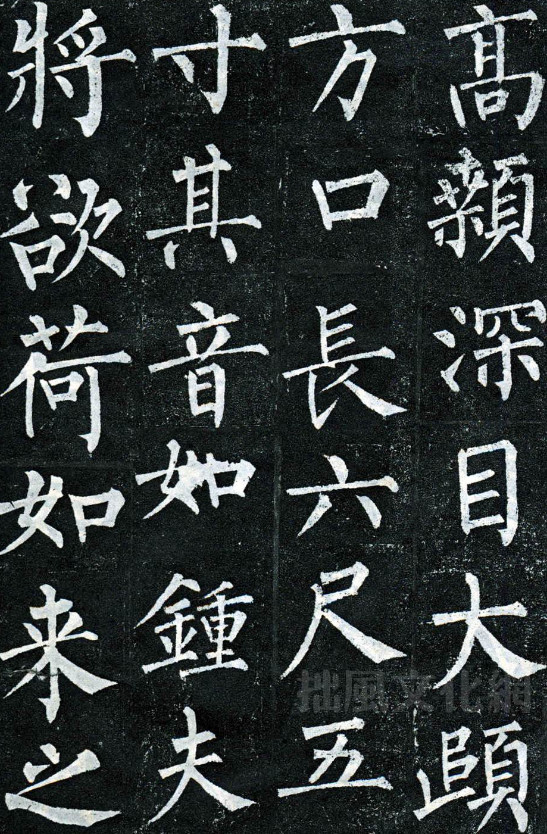 髙顙深目大頤
方口長六尺五
寸其音如鍾夫
將欲荷如来之
拙風文化網